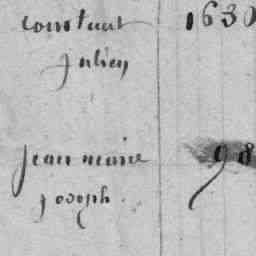 constant 1630
julien
jean marie 98
joseph